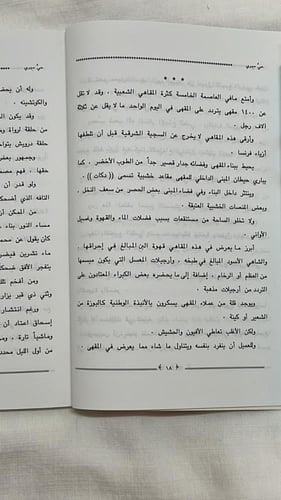 حي سيدي
* * *
وأمتع مافي العاصمة الخامسة كثرة المقاهي الشعبية ، وقد لا تقل
عن ١٤٠٠ مقهى يتردد على المقهى في اليوم الواحد ما لا يقل عن ثلاثة
آلاف رجل .
وأرقى هذه المقاهي لا يخرج عن السجية الشرقية قبل أن تلطفها
أزياء فرنسا .
يحيط بناء المقهى وفضائه جدار قصير جداً من الطوب الأخضر ، كما
يباري حيطان المبنى الداخلي للمقهى مقاعد خشبية تسمى (( دكات )) .
وينتثر داخل البناء وفي فضاء المبنى بعض الحصر من سعف النخل ،
وبعض المنصات الخشبية العتيقة .
ولا تخلو الساحة من مستنقعات بسبب فضلات الماء والقهوة وغسيل
الأواني .
أبرز ما يعرض في هذه المقاهي قهوة البن المبالغ في إحراقها ،
والشاهي الأسود المبالغ في طبخه . وأرجيلات المعسل التي يكون ميسمها
من العظم أو الرخام . إضافة إلى ما يحضره بعض الكبراء المعتادون على
التردد من أرجيلات مذهبة .
ويوجد قلة من عملاء المقهى يسكرون بالأنبذة الوطنية كالبوزة من
الشعير أو كينة .
ولكن الأغلب تعاطي الأفيون والحشيش .
وللعميل أن ينفرد بنفسه ويتناول ما شاء مما يعرض في المقهى .
١٨
حي سيدي
وله أن يحض
والكوتشينه .
وقد يكون ال
من حلقة لرواة
من حلقة درويش
وجمهور بعض
حقها ، فهم
ولو قدر أن
التافه الذي أضحك
من الممكن أن
مساء النور
كأن يقول عن
ماء تشرين
يتفجر الأفق
ومن أفخم
وثني ذي قبر
ورغم انتشار
إسحاق اعتاد أن
وماشياً تارة ،
من أول الليل